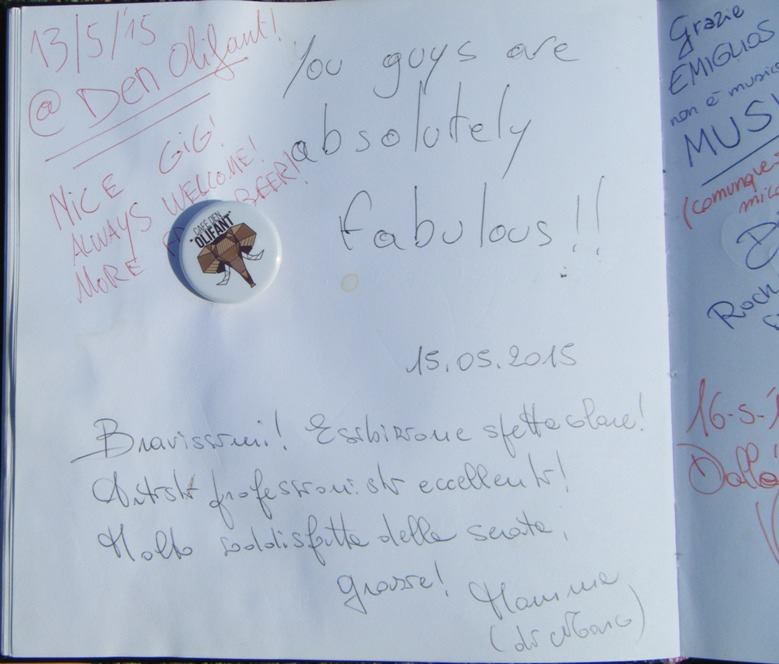 13/5/15
@ Den Olifant!
NICE GIG!
ALWAYS WELCOME!
MORE BEER!
CAFE DEN
OLIFANT
You guys are
absolutely
fabulous!!
15.05.2015
Bravissimi! Esibizione spettacolare!
Artisti professionisti eccellenti!
Molto soddisfatta della serata,
grazie! Mamma
Grazie
EMIGLIOS
non è music
MUS
(comunque
mic
Rock
16-5-1
Dalla